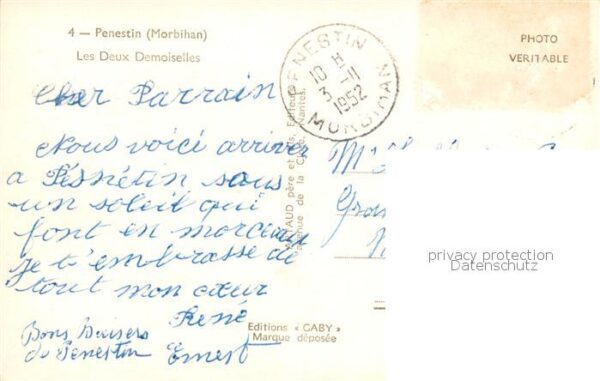 4 — Penestin (Morbihan)
Les Deux Demoiselles
PHOTO
VERITABLE
PENESTIN
10 H
3 - 11
1952
MORBIHAN
Cher Parrain
Nous voici arriver
a Pésnétin sous
un soleil qui
font en morceau
je t'embrasse de
tout mon cœur
René
Bons Baisers
de Penestin
Ernest
ARTAUD père et fils, Editeurs
avenue de la Close, Nantes.
Editions « GABY »
Marque déposée
privacy protection
Datenschutz